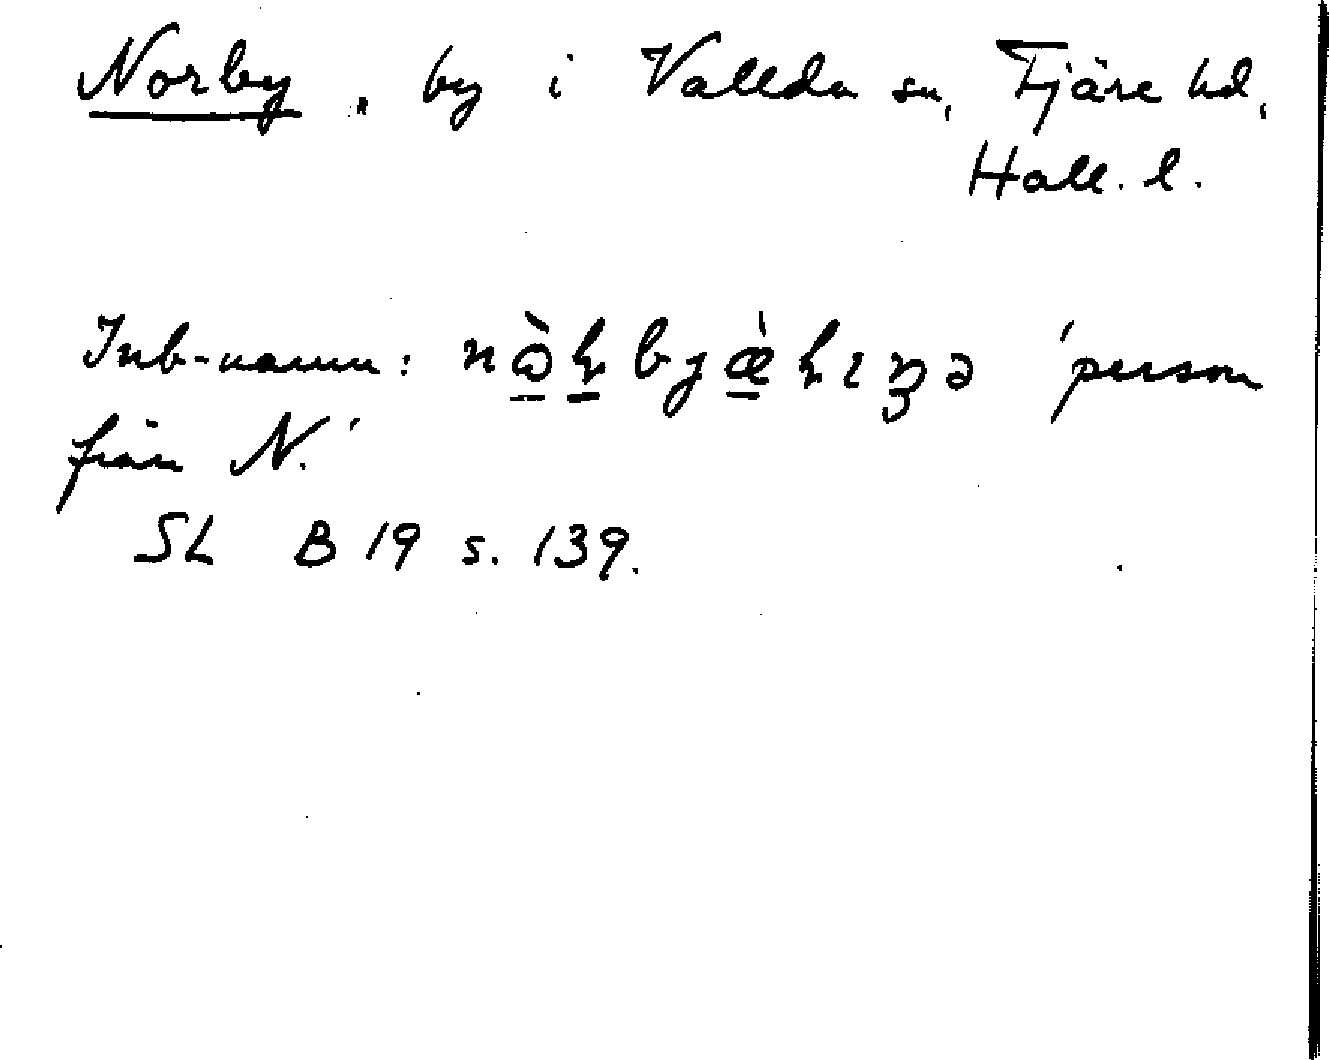 Norby, by i Vallda sn, Fjäre hd,
Hall. l.
Inb-namn: 'person
från N.'
SL B 19 s. 139.